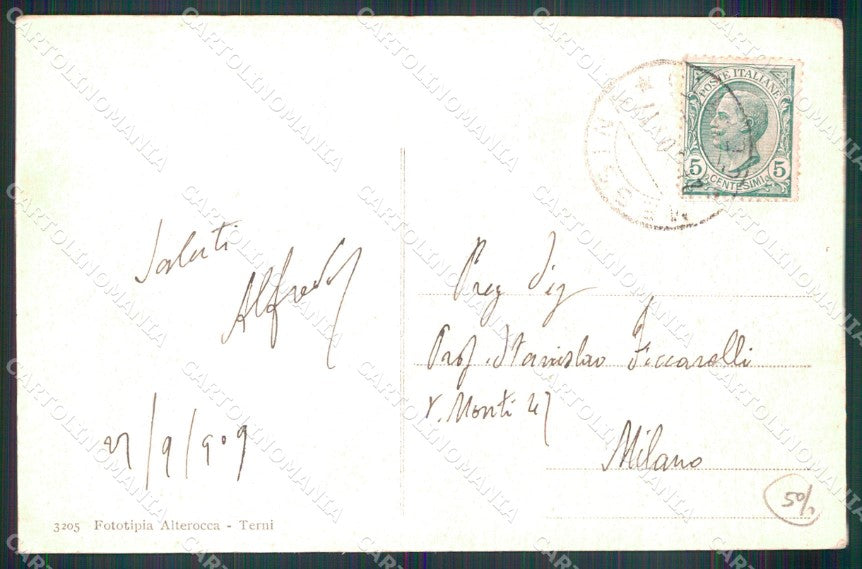 Saluti
Alfredo
27/9/909
3205 Fototipia Alterocca - Terni
POSTE ITALIANE
5 CENTESIMI 5
MESSINA
Preg Sig
Prof. Stanislao Ficcarelli
V. Monti 47
Milano
50/
CARTOLINOMANIA